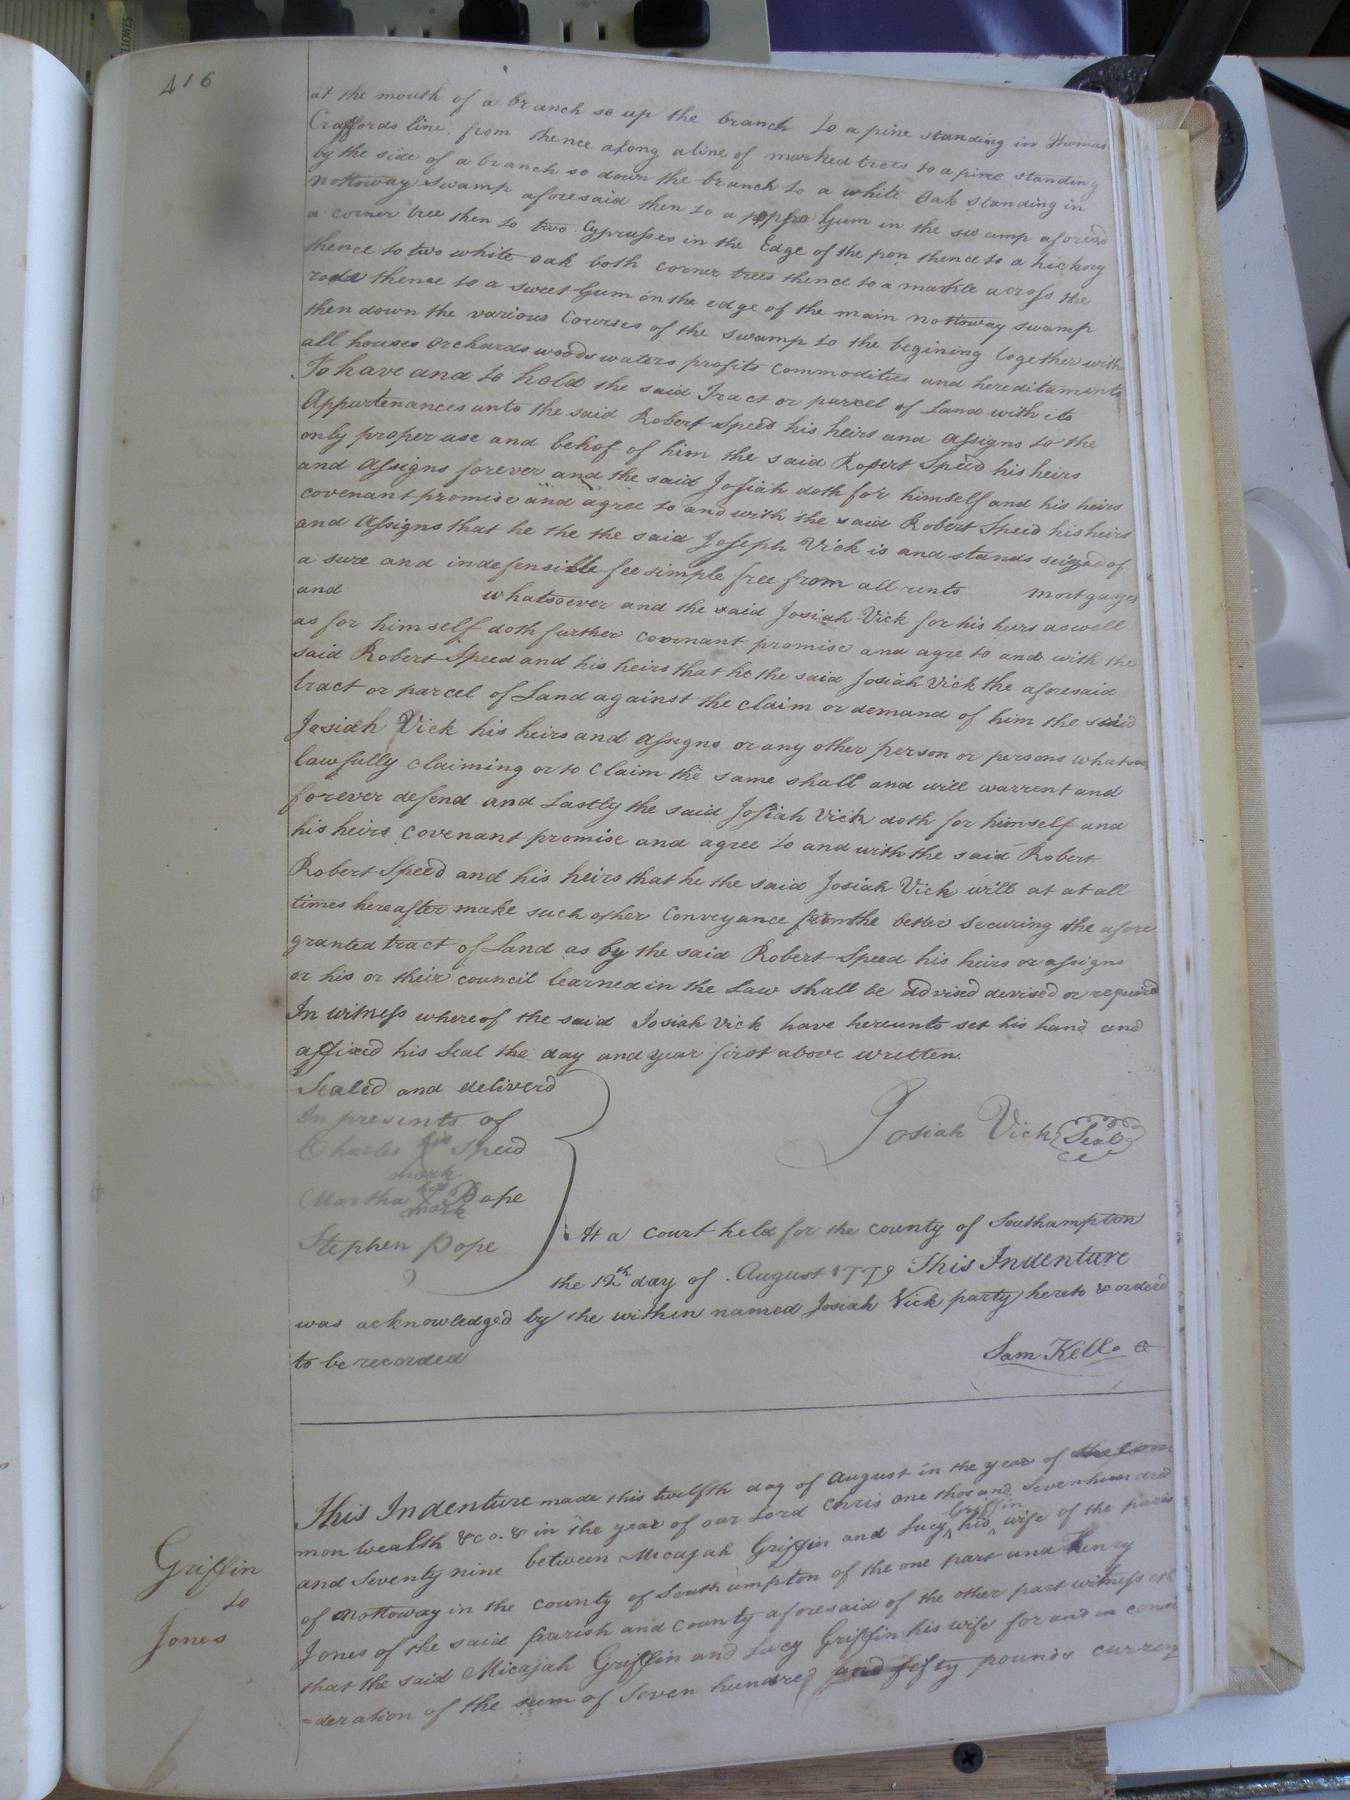 416
at the mouth of a branch so up the branch to a pine standing in Thomas
Craffords line from thence along a line of marked trees to a pine standing
by the side of a branch so down the branch to a white Oak standing in
Nottoway Swamp aforesaid then to a Gum in the swamp aforesd
a corner tree then to two Cypresses in the Edge of the pon thence to a hickory
thence to two white oak both corner trees thence to a markle across the
rodd thence to a sweet Gum on the edge of the main Nottoway swamp
then down the various Courses of the swamp to the begining together with
all houses Orchards woods waters profits Commodities and hereditaments
To have and to hold the said Tract or parcel of Land with its
Appurtenances unto the said Robert Speed his heirs and Assigns to the
only proper use and behof of him the said Robert Speed his heirs
and Assigns forever and the said Josiah doth for himself and his heirs
covenant promise and agree to and with the said Robert Speed his heirs
and Assigns that he the the said Joseph Vick is and stands seized of
a sure and indefensible fee simple free from all rents mortgages
and whatsoever and the said Josiah Vick for his heirs as well
as for himself doth further covenant promise and agre to and with the
said Robert Speed and his heirs that he the said Josiah Vick the aforesaid
tract or parcel of Land against the claim or demand of him the said
Josiah Vick his heirs and Assigns or any other person or persons whatsoe
lawfully claiming or to Claim the same shall and will warrent and
forever defend and Lastly the said Josiah Vick doth for himself and
his heirs Covenant promise and agree to and with the said Robert
Robert Speed and his heirs that he the said Josiah Vick will at at all
times hereafter make such other Conveyance for the better Securing the afore
granted tract of Land as by the said Robert Speed his heirs or assigns
or his or their council learned in the Law shall be advised devised or required
In witness whereof the said Josiah Vick have hereunto set his hand and
affixed his Seal the day and year first above written.
Sealed and deliverd
In presents of
Josiah Vick Seal
Charles his Speed
mark
Martha her Pope
mark
Stephen Pope
At a Court held for the county of Southampton
the 12th day of August 1779 This Indenture
was acknowledged by the within named Josiah Vick party hereto & ordered
to be recorded
Sam Kello C
This Indenture made this twelfth day of August in the year of the Com
mon wealth &co. & in the year of our Lord Chris one thosand Sevenhundred
and Seventy nine between Micajah Griffin and Lucy Griffin his wife of the paris
of Nottoway in the County of Southampton of the one part and Henry
Griffin
to
Jones
Jones of the said parish and County aforesaid of the other part witnesseth
that the said Micajah Griffin and Lucy Griffin his wife for and in consi
=deration of the sum of Seven hundred and fifty pounds curren